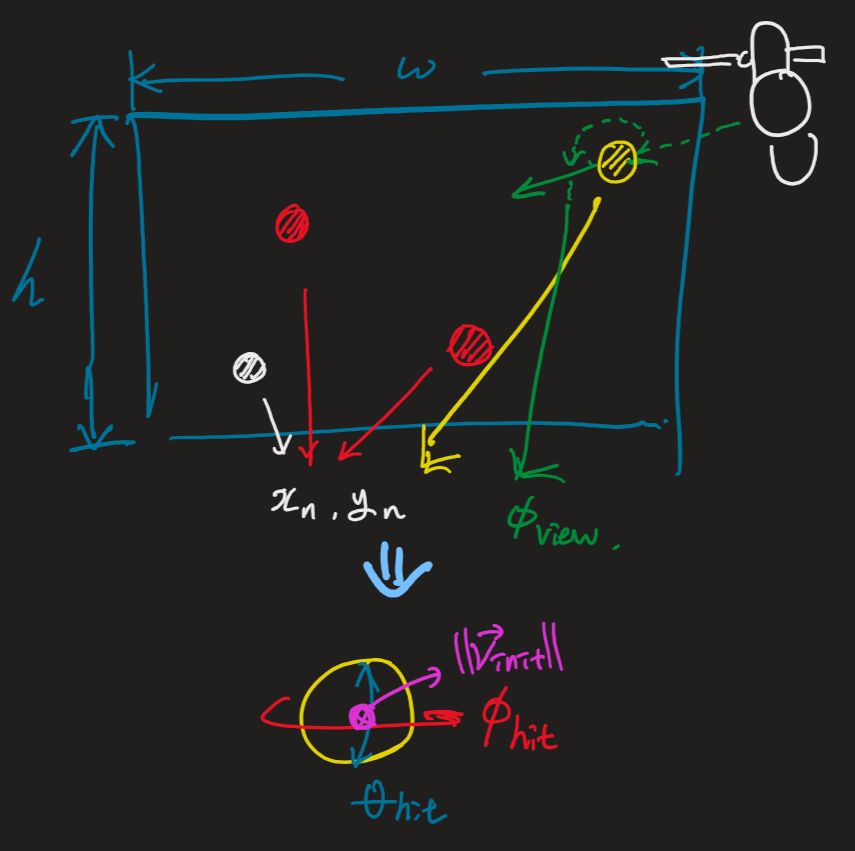 w
h
xₙ, yₙ
ϕview.
||V⃗init||
ϕhit
θhit